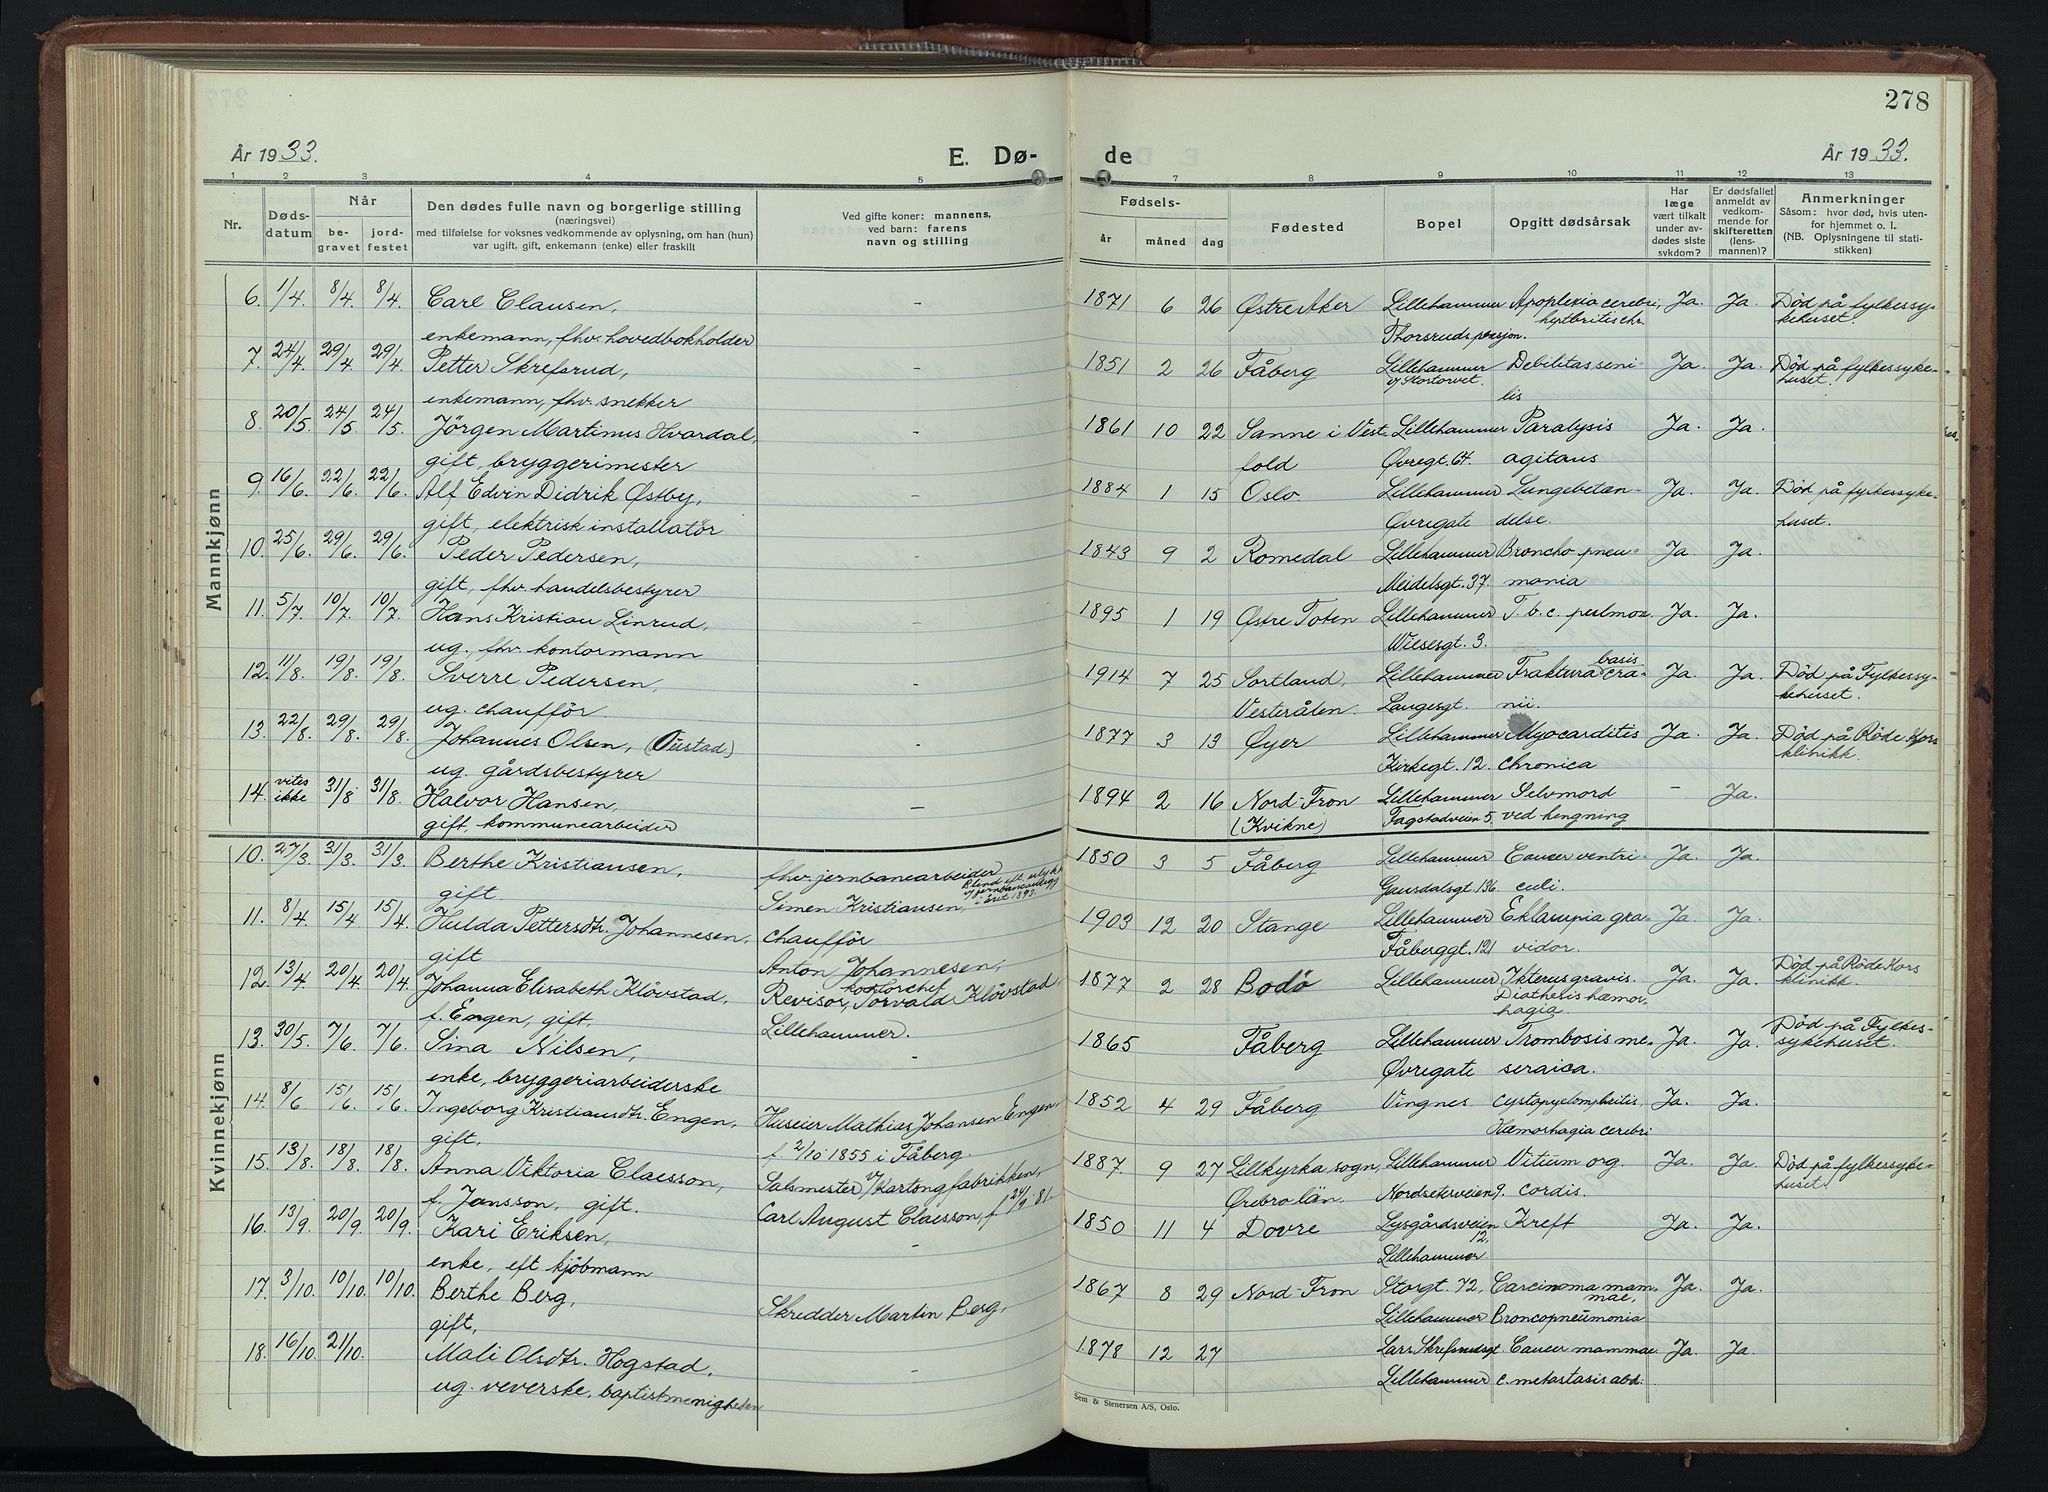 278
År 1933.
E. Dø-
de
År 1933.
1 2 3 4 5 7 8 9 10 11 12 13
Nr.
Døds-
datum
Når
be-
gravet
jord-
festet
Den dødes fulle navn og borgerlige stilling
(næringsvei)
med tilføielse for voksnes vedkommende av oplysning, om han (hun)
var ugift, gift, enkemann (enke) eller fraskilt
Ved gifte koner: mannens,
ved barn: farens
navn og stilling
Fødsels-
år
måned
dag
Fødested
Bopel
Opgitt dødsårsak
Har
læge
vært tilkalt
under av-
dødes siste
sykdom?
Er dødsfallet
anmeldt av
vedkom-
mende for
skifteretten
(lens-
mannen)?
Anmerkninger
Såsom: hvor død, hvis uten-
for hjemmet o. l.
(NB. Oplysningene til stati-
stikken)
Mannkjønn
6. 1/4. 8/4. 8/4. Carl Clausen, - 1871 6 26 Østre Aker Lillehammer Apoplexia cerebri, Ja. Ja. Død på fylkessy-
enkemann, fhv. hovedbokholder Thorsruds pensjon. kehuset.
7. 24/4. 29/4 29/4 Petter Skrefsrud, - 1851 2 26 Fåberg Lillehammer Debilitas seni- Ja. Ja. Død på fylkessyke-
enkemann, fhv. snekker v/ Stortorvet. lis huset.
8. 20/5. 24/5. 24/5. Jörgen Martinus Hvardal, - 1861 10 22 Sanne i Vest- Lillehammer Paralysis Ja. Ja.
gift, bryggerimester fold Øvregt. 64. agitans
9. 16/6. 22/6. 22/6. Alf Edvin Didrik Østby, - 1884 1 15 Oslo. Lillehammer Lungebetæn- Ja. Ja. Død på fylkessyke-
gift, elektrisk installatör Øvregate delse. huset.
10. 25/6. 29/6. 29/6. Peder Pedersen, - 1843 9 2 Romedal Lillehammer Broncho pneu- Ja. Ja.
gift, fhv. handelsbestyrer Meidelsgt. 37. monia
11. 5/7. 10/7. 10/7. Hans Kristian Linrud, - 1895 1 19 Østre Toten Lillehammer T. b. c. pulmon. Ja. Ja.
ug. fhv. kontormann Wiesesgt. 3.
12. 11/8. 19/8. 19/8. Sverre Pedersen, - 1914 7 25 Sortland, Lillehammer Fraktura basis cra- Ja. Ja. Død på Fylkessy-
ug. chaufför. Vesterålen. Langesgt. nii. kehuset.
13. 22/8. 29/8. 29/8. Johannes Olsen, (Oustad) - 1877 3 13 Øyer Lillehammer Myocarditis Ja. Ja. Død på Røde Kors
ug. gårdsbestyrer Kirkegt. 12. chronica klinikk.
14. vites ikke 31/8. 31/8. Halvor Hansen, - 1894 2 16 Nord-Fron Lillehammer Selvmord - Ja.
gift, kommunearbeider (Kvikne) Fagstadveien 5. ved hengning
Kvinnekjønn
10. 27/3. 31/3. 31/3. Berthe Kristiansen, fhv. jernbanearbeider 1850 3 5 Fåberg Lillehammer Cancer ventri- Ja. Ja.
gift. Simen Kristiansen, Blind eft. ulykke v/ jernbaneanlegg i året 1893. Gausdalsgt. 136. culi.
11. 8/4. 15/4 15/4. Hulda Pettersdtr. Johannesen, chaufför 1903 12 20 Stange Lillehammer Eklampia gra- Ja. Ja.
gift Anton Johannesen, Fåberggt. 121 vidor.
12. 13/4. 20/4 20/4 Johanna Elisabeth Klövstad, Revisor, kontorchef Torvald Klövstad, 1877 2 28 Bodö Lillehammer Ikterus gravis. Ja. Ja. Død på Røde Kors
f. Engen, gift. Lillehammer. Diathesis hæmor- klinikk.
hagia.
13. 30/5. 7/6. 7/6. Sina Nilsen, - 1865 Fåberg Lillehammer Trombosis me- Ja. Ja. Død på Fylkes-
enke, bryggeriarbeiderske Øvregate seraica. sykehuset.
14. 8/6 15/6. 15/6. Ingeborg Kristiansdtr. Engen, Huseier Mathias Johansen Engen, 1852 4 29 Fåberg Vingnes Cystopyelonephritis, Ja. Ja.
gift, f. 2/10 1855 i Fåberg. Hæmorhagia cerebri
15. 13/8. 18/8. 18/8. Anna Viktoria Claesson, Salsmester v/ Kartongfabrikken, 1887 9 27 Lillkyrka sogn, Lillehammer Vitium org. Ja. Ja. Død på fylkessyke-
f. Jansson, gift. Carl August Claesson, f. 24/9 81. Örebro län. Nordseterveien 9. cordis. huset.
16. 13/9. 20/9. 20/9. Kari Eriksen, - 1850 11 4 Dovre Lysgårdsveien 12, Kreft Ja. Ja.
enke, eft. kjöbmann Lillehammer
17. 3/10. 10/10. 10/10. Berthe Berg, Skredder Martin Berg, 1867 8 29 Nord-Fron Storgt. 72, Carcinoma mam- Ja. Ja.
gift, Lillehammer mae, Broncopneumonia
18. 16/10. 21/10. Mali Olsdtr. Hogstad, - 1878 12 27 Lars Skrefsrudsgt Cancer mammae Ja. Ja.
ug. veverske, baptistmenigheten Lillehammer c. metastasis abd.
Sem & Stenersen A/S, Oslo.